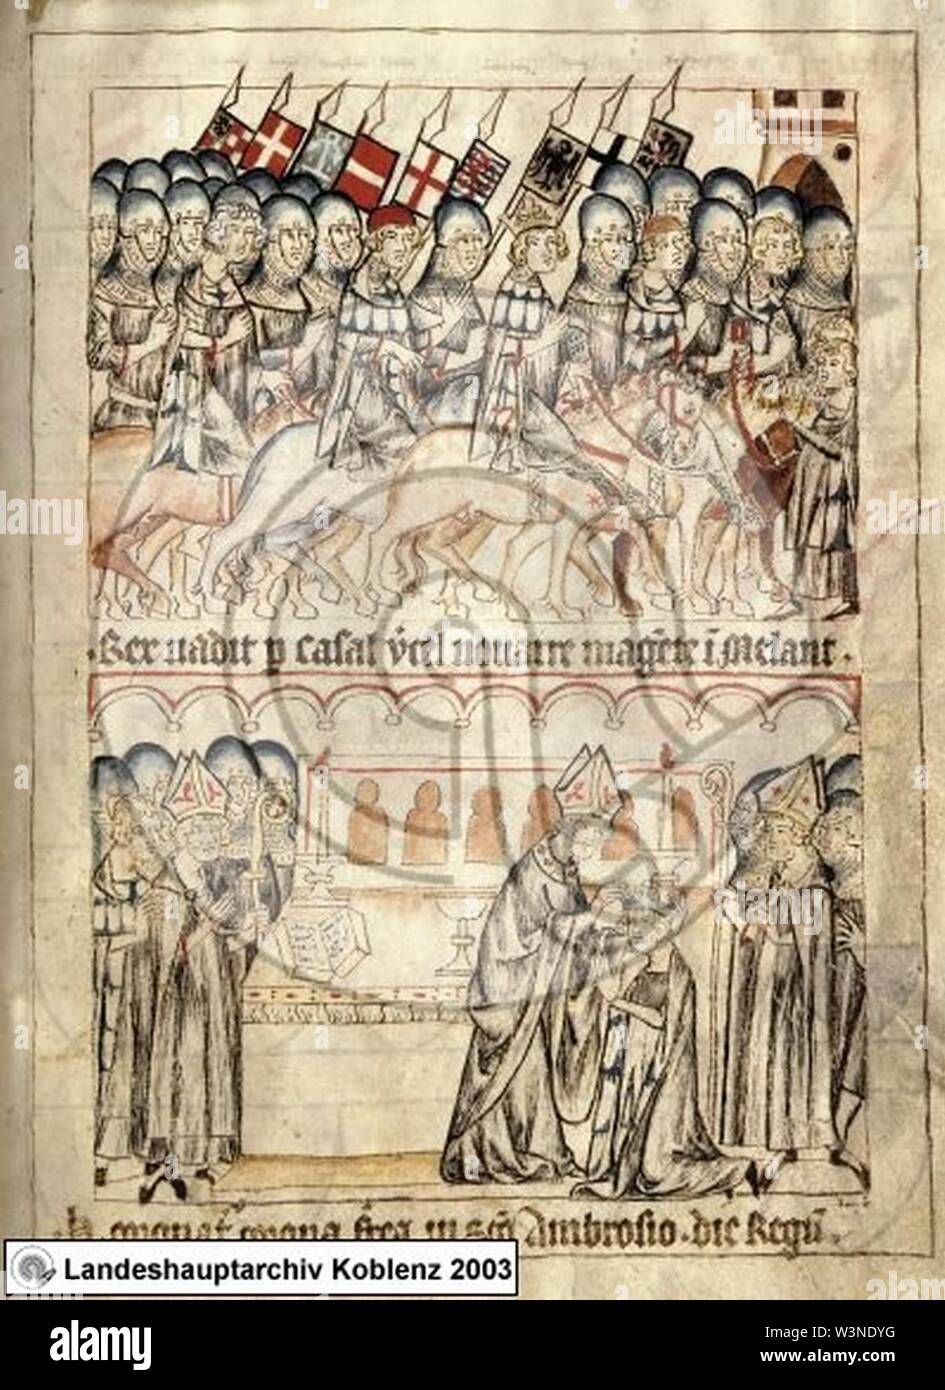 Rex vadit p casal v̄cel nouarre mag̅te ī Melant.
coronat̄ corona frea in sc̄o Ambrosio . die Regū .
Landeshauptarchiv Koblenz 2003
alamy
Image ID: W3NDYG
www.alamy.com